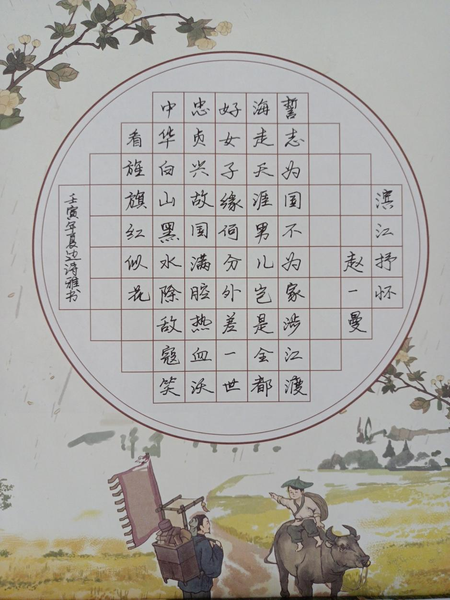 滨江抒怀
赵一曼
誓志为国不为家涉江渡
海走天涯男儿岂是全都
好女子缘何分外差一世
忠贞兴故国满腔热血沃
中华白山黑水除敌寇笑
看旌旗红似花
壬寅年夏边雅书